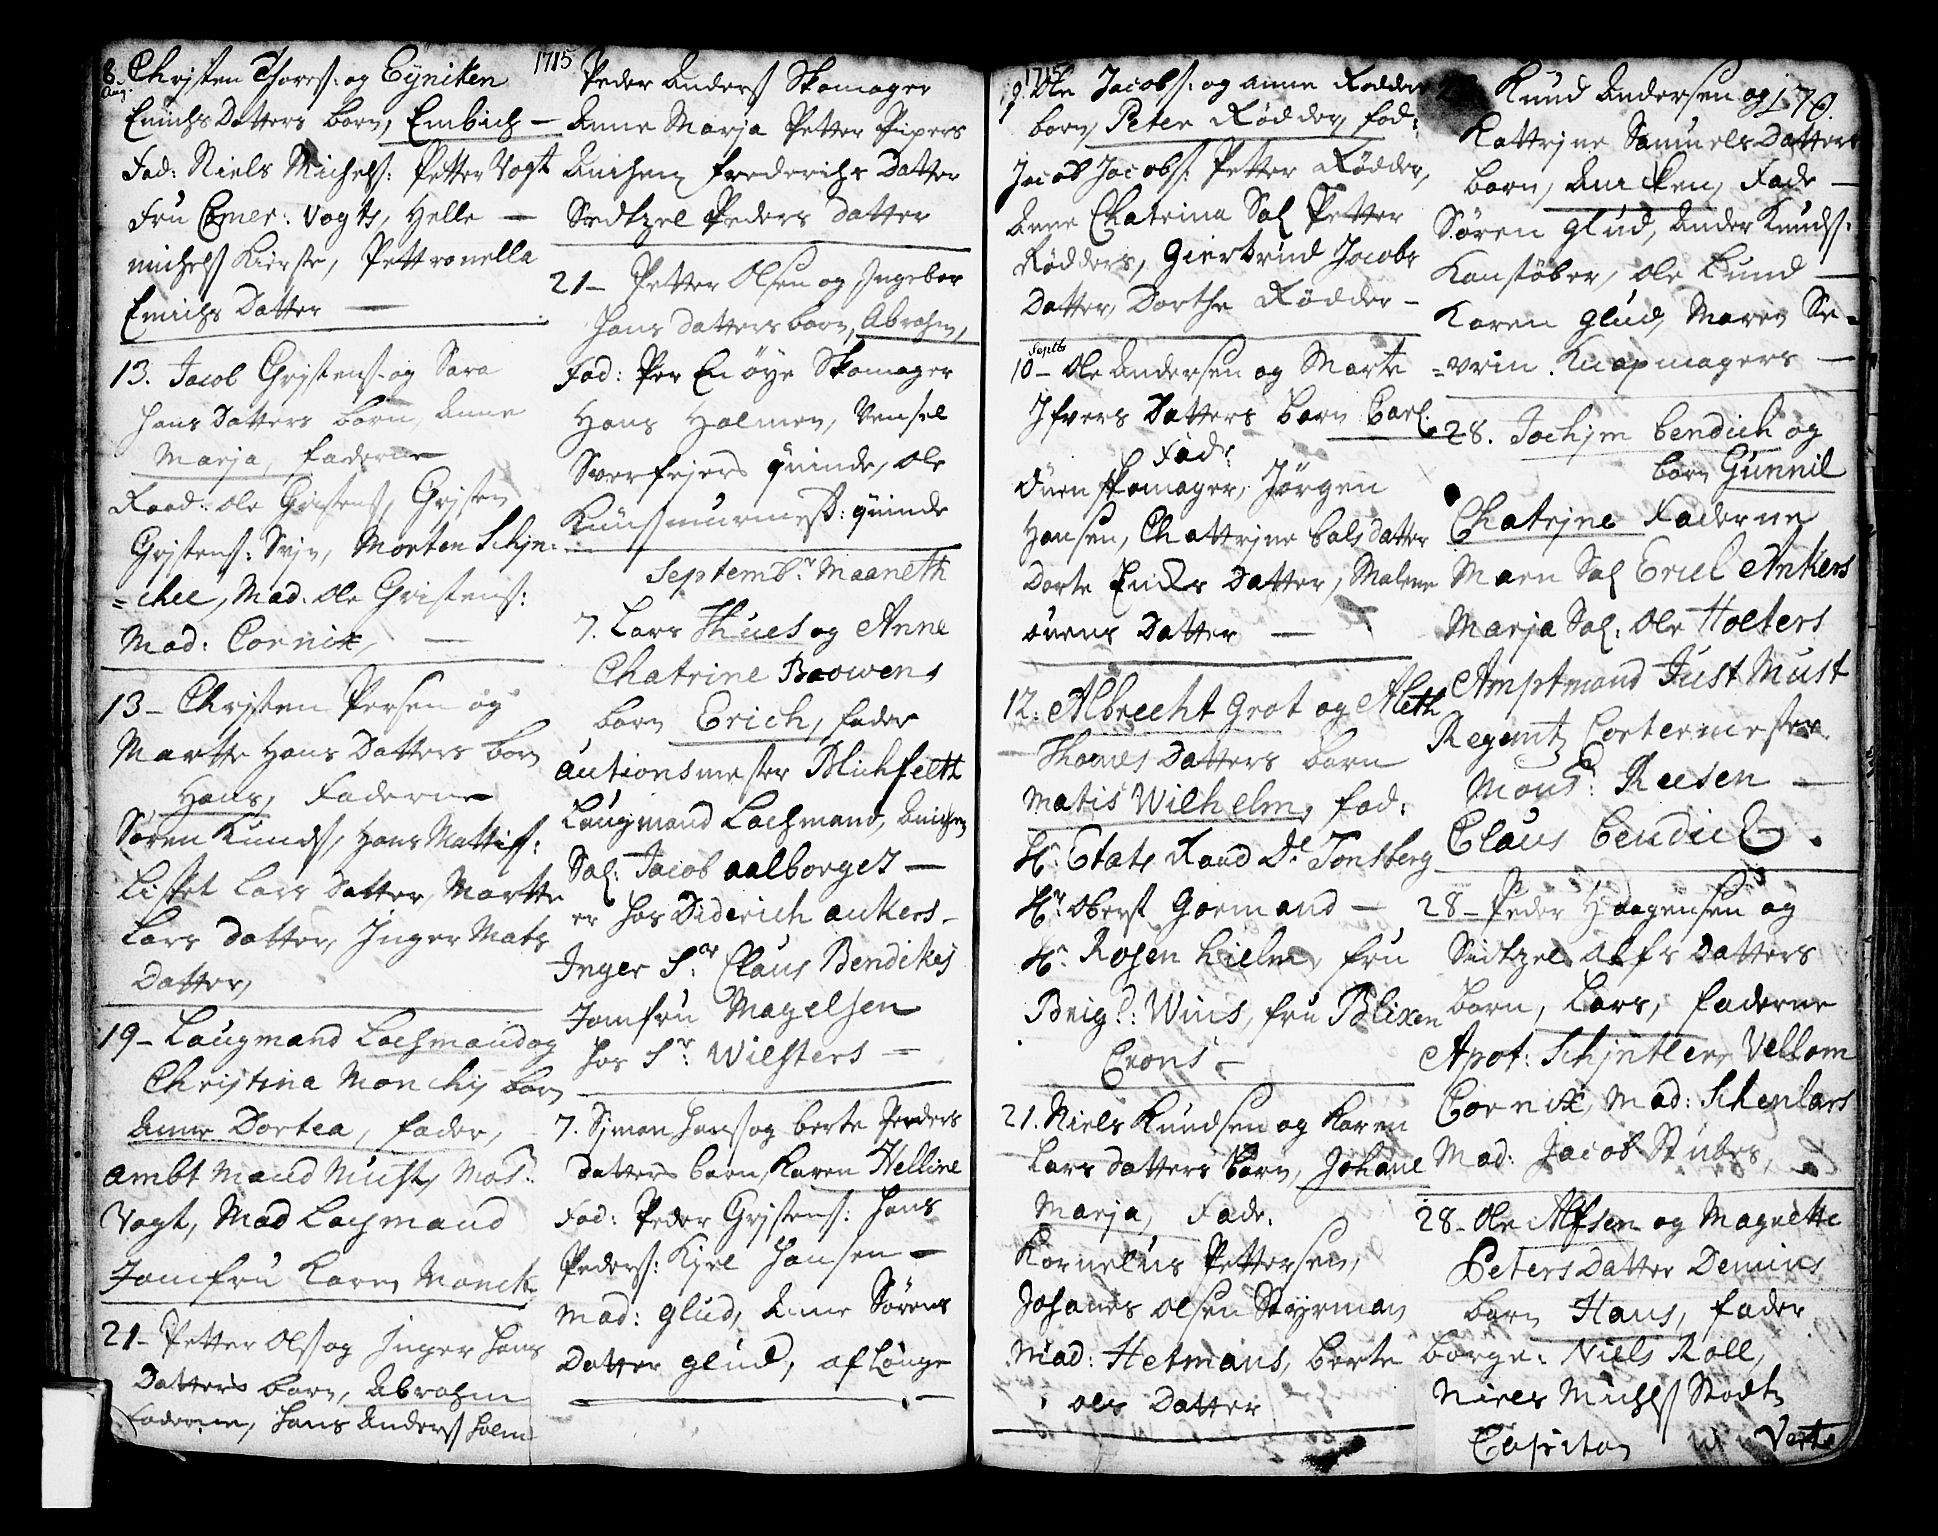 1715
8. Christen Thores: og Eyniken
Aug.
Emichs Datters barn, Embich —
Fad: Niels Michels: Petter Vogt
Fru Comer: Vogts, Helle —
michels Kierste, Pettronella
Emichs Datter —
13. Jacob Gristens: og Sara
Hans Datters barn, Anne
Marja, faderne
Raad: Ole Gristens, Gristen
Gristens: Svin, Morten Schin=
=chel, Mad. Ole Gristens:
Mad: Cornix, —
13 — Christen Persen og
Martte Hans Datters barn
Hans, Faderne
Sören Kunds, Hans Mattis:
Lisbet Lars Datter, Martte
Lars datter, Inger Mats
Datter,
19 — Laugmand Lachmand og
Christina Monchs barn
Anne Dortea, fader,
ambt Mand Must, Mos:
Vogt, Mad Lachmand
Jomfru Karen Monck
21 — Petter Ols og Inger Hans
Datters barn, Abrahm
Faderne, Hans Anders Holm
Peder Anders Skomager
Anne Marja Petter Pipers
Anichen Frederichs Datter
Sedtzel Peders datter
21 — Petter Olsen og Ingebor
Hans datters barn, Abrahm,
Fad: Per Enøye Skomager
Hans Holmen, Vensel
Sverfejers quinde, Ole
Kuns murmest: quinde
Septemb:r Maaneth
7. Lars Thues og Anne
Chatrine Boowens
barn Erich, fader
autionsmester Blichfelth
Laugmand Lachmand, Anichen
Sal: Jacob aalborgs —
er hos Diderich ankers —
Inger S:r Claus Bendikes
Jomfru Magelsen
hos S:r Wilsters —
7. Simon Hans og berte Peders
datters barn, Karen Helline
Fad: Peder Gristens: Hans
Peders: Kiel Hansen —
Mad: Glud, Anne Sörens
Datter glud, af Lauge
1715
9. Ole Jacobs: og anne Rödders
barn, Peter Rödder, fad:
Jacob Jacobs: Petter Rödder,
Anne Chatrina Sal Petter
Rödders, Giertrud Jacobs
Datter, Dorthe Rödder —
Septb
10 — Ole Andersen og Marte
Ifvers Datters barn Carl.
Fadr:
Owen skomager, Jörgen
Hansen, Chattrine Calsdatter
Dorte Ericks Datter, Malene
owens Datter —
12. Albrecht Grot og Aleth
Thomes Datters barn
Matis Wilhelm, fad:
Hr. Etats Raad De Tonsberg
Hr. Oberst Gormand —
Hr. Rosen Kielm, fru
Brig:d: Wins, fru Blixen
Crons —
21. Niels Knudsen og Karen
Lars datters barn, Johane
Marja, Fadr.
Kornelius Pettersen,
Johanes Olsen Styrman
Mad: Hetmans, berte
ols Datter
170.
Knud Andersen og
Kattrine Samuels Datters
barn, Anicken, Fade —
Sören Glud, Ander Knuds:
Kanstöber, Ole Lund —
Karen Glud, Maren Se=
=vrin Knapmagers —
28. Jochim Bendich og
barn Gunnil
Chatrine Faderne
Maren Sal Eriel Ankers
Marja Sal: Ole Holters
Amptmand Just Must
Regemtz Cortermester
Mons: Reesen —
Claus Bendick.
28 — Peder Haagensen og
Sedtzel Alfs Datters
barn, Lars, faderne
Apot: Schintler, Vellom
Cornix, Mad: Schenlars
Mad: Jacob Stubes,
28 — Ole Alfsen og Magrette
Peters Datter Denius
barn Hans, fader
börge: Niels Roll,
Niels Michels Stodtz
Capitan
Verte